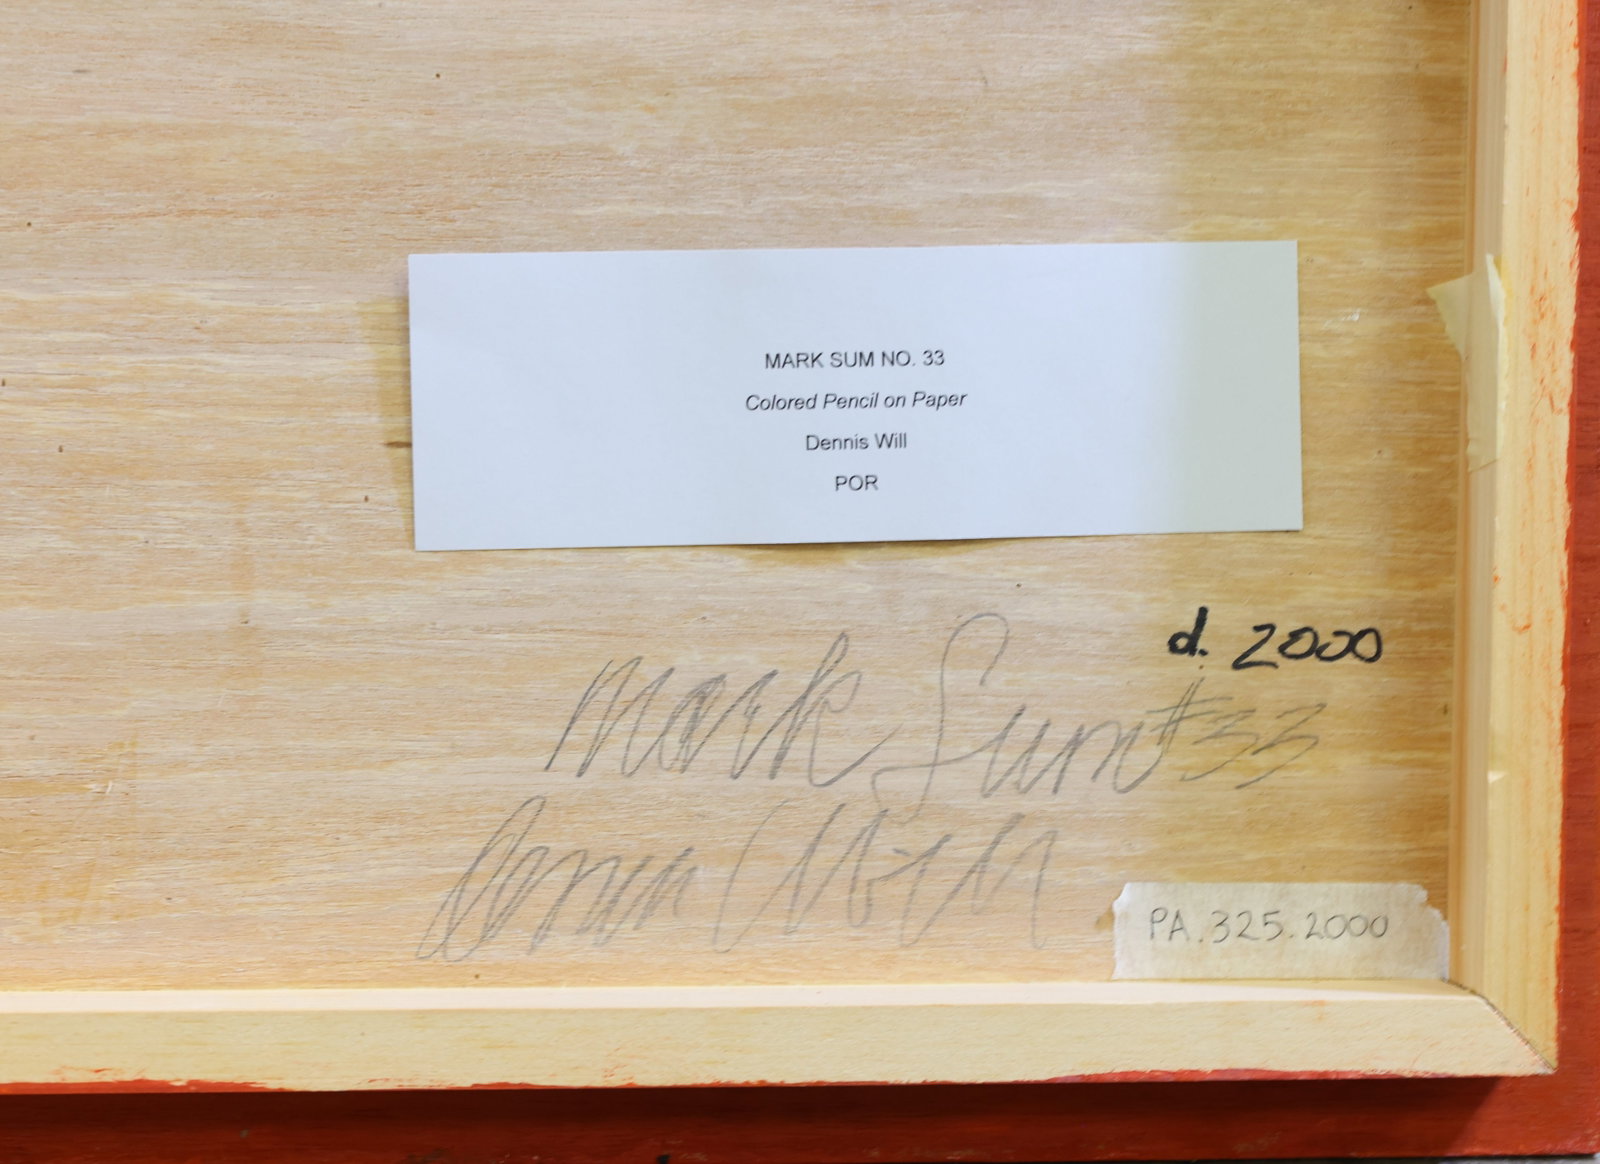 MARK SUM NO. 33
Colored Pencil on Paper
Dennis Will
POR
d. 2000
Mark Sum #33
PA.325.2000